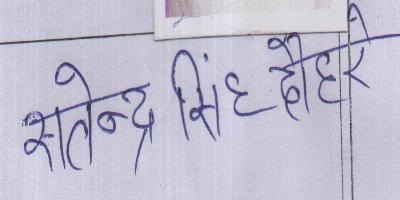 सतेन्द्र सिंह दौहरे